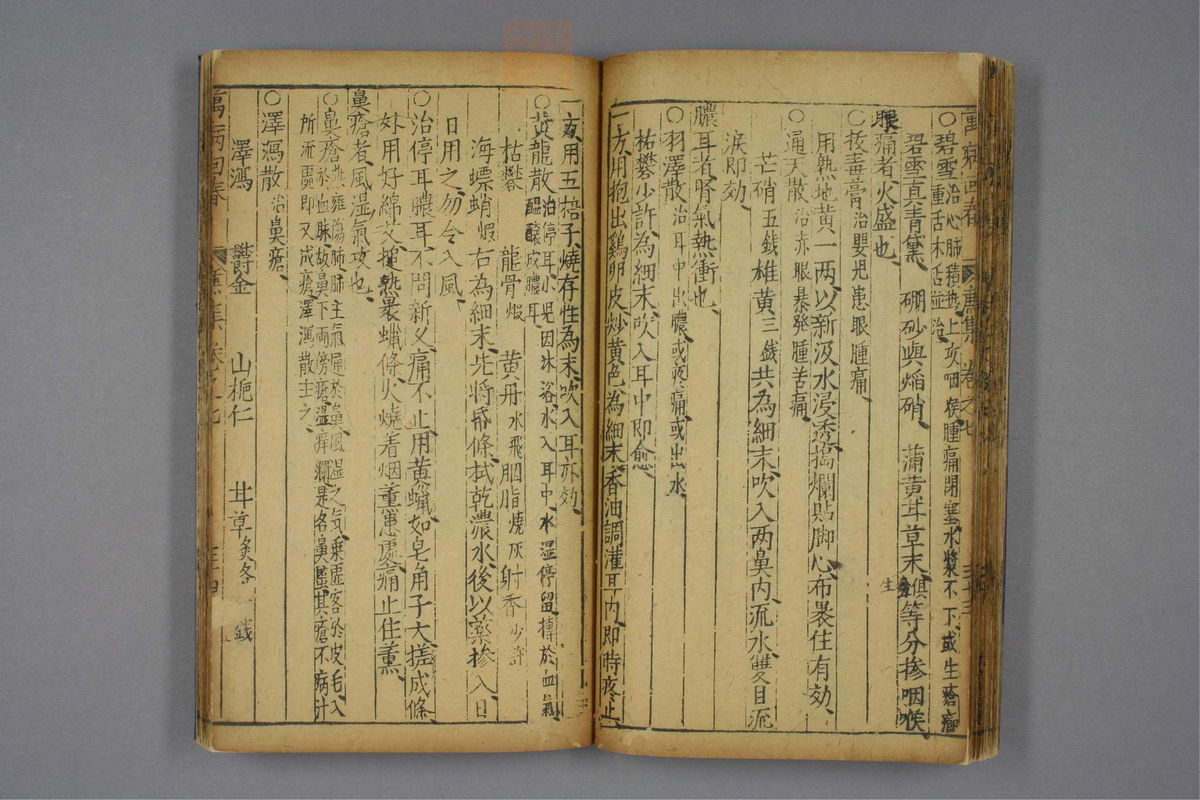 ○碧雪治心肺積热上攻咽喉腫痛閉塞水漿不下或生瘡癤
重舌木舌並治
碧雪真青黛 硼砂與焰硝 蒲黄甘草末俱等分掺咽喉
眼痛者火盛也
○拔毒膏治嬰児患眼腫痛
用熟地黄一两以新汲水浸透搗爛貼脚心布裹住有効
○通天散治赤眼暴發腫苦痛
芒硝五錢雄黄三錢共為細末吹入两鼻内流水雙目流
淚即効
膿耳者腎氣熱衝也
○羽澤散治耳中出膿或疼痛或出水
枯礬少許為細末吹入耳中即愈
一方用抱出鷄卵皮炒黄色為細末香油調灌耳内即時疼止
一方用五棓子燒存性為末吹入耳亦効
○黄龍散治停耳小児因沐浴水入耳中水湿停留摶於血氣
醖釀成膿耳
枯礬 龍骨煅 黄丹水飛胭脂燒灰射香少許
海螵蛸煅右為細末先将綿條拭乾濃水後以藥掺入日
日用之勿令入風
○治停耳膿耳不問新久痛不止用黄蝋如皂角子大搓成條
外用好綿艾搥熟裹蝋條火燒着烟薰患處痛止住薰
鼻瘡者風湿氣攻也
○鼻瘡於血脉故鼻下兩傍瘡湿痒爛是名鼻䘌其瘡不痛汁
所流處即又成瘡澤瀉散主之
○澤瀉散治鼻瘡
澤瀉 鬱金 山梔仁 甘草炙各一錢
萬病回春 卷之七